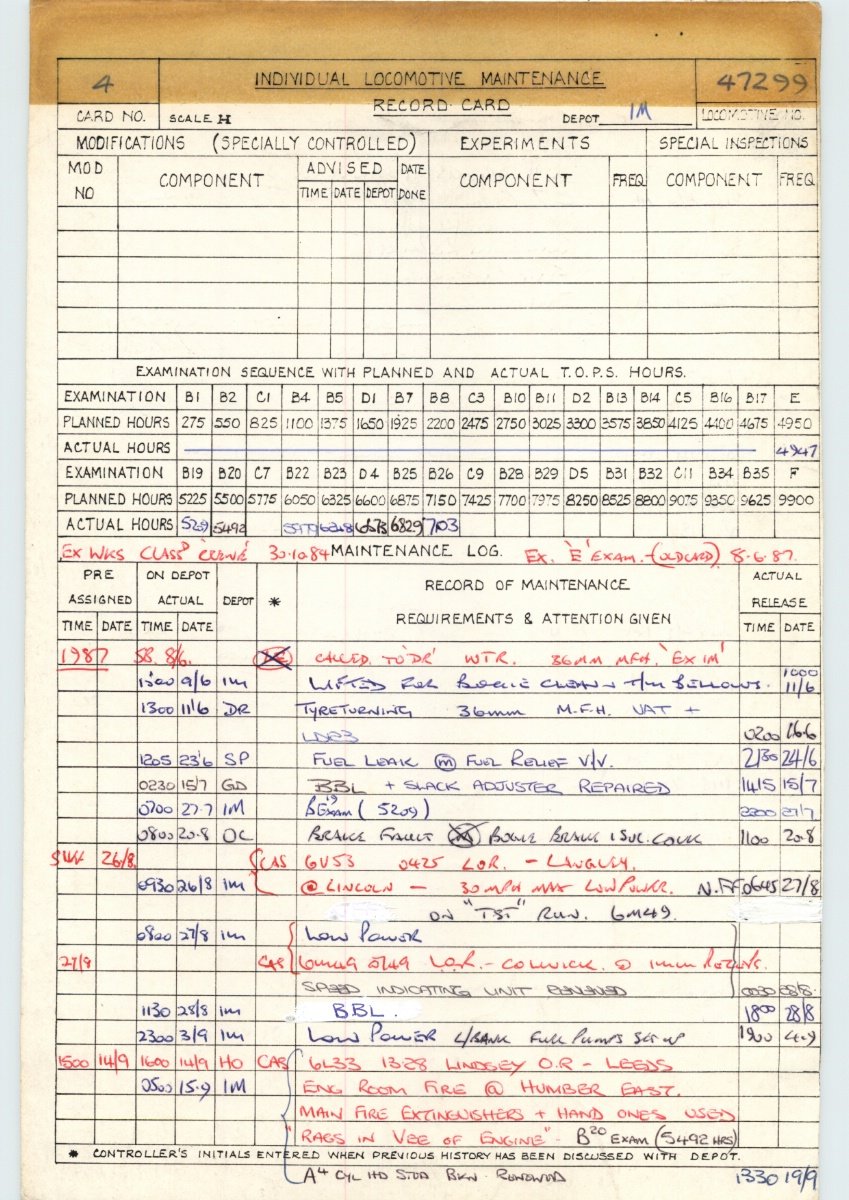 4 INDIVIDUAL LOCOMOTIVE MAINTENANCE 47299
RECORD CARD
CARD NO. SCALE H DEPOT IM LOCOMOTIVE NO.
MODIFICATIONS (SPECIALLY CONTROLLED) EXPERIMENTS SPECIAL INSPECTIONS
MOD NO COMPONENT ADVISED DATE DONE COMPONENT FREQ COMPONENT FREQ.
TIME DATE DEPOT
EXAMINATION SEQUENCE WITH PLANNED AND ACTUAL T.O.P.S. HOURS.
EXAMINATION B1 B2 C1 B4 B5 D1 B7 B8 C3 B10 B11 D2 B13 B14 C5 B16 B17 E
PLANNED HOURS 275 550 825 1100 1375 1650 1925 2200 2475 2750 3025 3300 3575 3850 4125 4400 4675 4950
ACTUAL HOURS 4947
EXAMINATION B19 B20 C7 B22 B23 D4 B25 B26 C9 B28 B29 D5 B31 B32 C11 B34 B35 F
PLANNED HOURS 5225 5500 5775 6050 6325 6600 6875 7150 7425 7700 7975 8250 8525 8800 9075 9350 9625 9900
ACTUAL HOURS 5209 5492 6829 7103
EX WKS CLASS'D 'CREWE' 30.10.84 MAINTENANCE LOG. EX. 'E' EXAM. - (OLDCARD) 8.6.87.
PRE ASSIGNED ON DEPOT ACTUAL DEPOT * RECORD OF MAINTENANCE REQUIREMENTS & ATTENTION GIVEN ACTUAL RELEASE
TIME DATE TIME DATE TIME DATE
1987 8/6. CALLED. TO 'DR' WTR. 36MM MFH. 'EX IM'
1500 9/6 IM LIFTED FOR BOGIE CLEAN + T/M BELLOWS. 1000 11/6
1300 11'6 DR TYRETURNING 36mm M.F.H. VAT +
0200 16.6
1205 23'6 SP FUEL LEAK m FUEL RELIEF V/V. 2130 24/6
0230 15/7 GD BBL + SLACK ADJUSTER REPAIRED 1415 15/7
0700 27.7 IM B19 EXAM (5209) 2200 27/7
0800 20.8 OC BRAKE FAULT BOGIE BRAKE ISOL. COCK 1100 20.8
26/8. CAS 6V53 0425 LOR. - LANGLEY.
0930 26/8 IM @ LINCOLN - 30 MPH MAX LOW POWER. N.F.F 0645 27/8
ON "TST" RUN. 6M49.
0800 27/8 IM LOW POWER
27/8 CAS 6M49 0749 L.O.R. - COLWICK. @
SPEED INDICATING UNIT RENEWED 0030 28/8.
1130 28/8 IM BBL. 1800 28/8
2300 3/9 IM LOW POWER L/BANK FUEL PUMPS SET UP 1900 4.9
1500 14/9 1600 14/9 HO CAS 6L33 13.28 LINDSEY O.R - LEEDS
0500 15.9 IM ENG ROOM FIRE @ HUMBER EAST.
MAIN FIRE EXTINGUISHERS + HAND ONES USED
"RAGS IN VEE OF ENGINE" - B20 EXAM (5492 HRS)
* CONTROLLER'S INITIALS ENTERED WHEN PREVIOUS HISTORY HAS BEEN DISCUSSED WITH DEPOT.
A4 CYL HD STUD BKN - RENEWED 1330 19/9